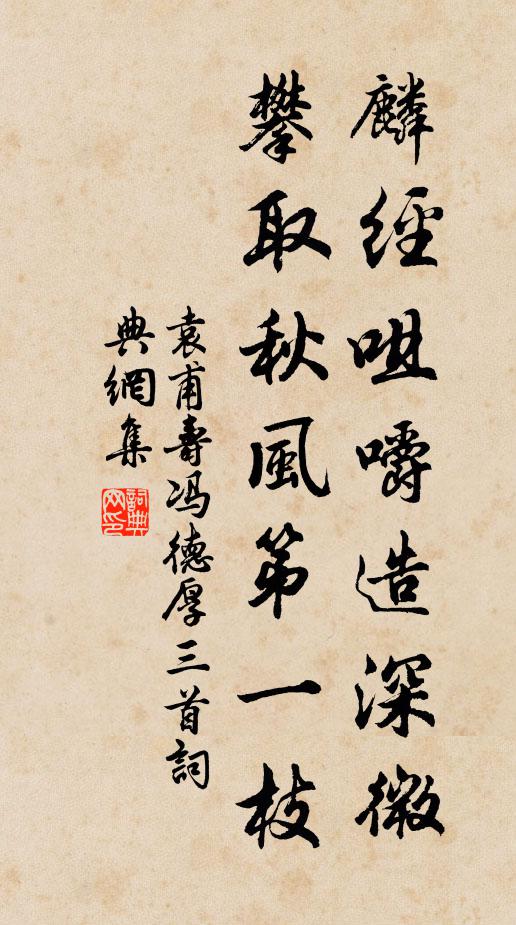 麟經咀嚼造深微
攀取秋風第一枝
袁甫壽冯德厚三首詞
典網集
詞典网印